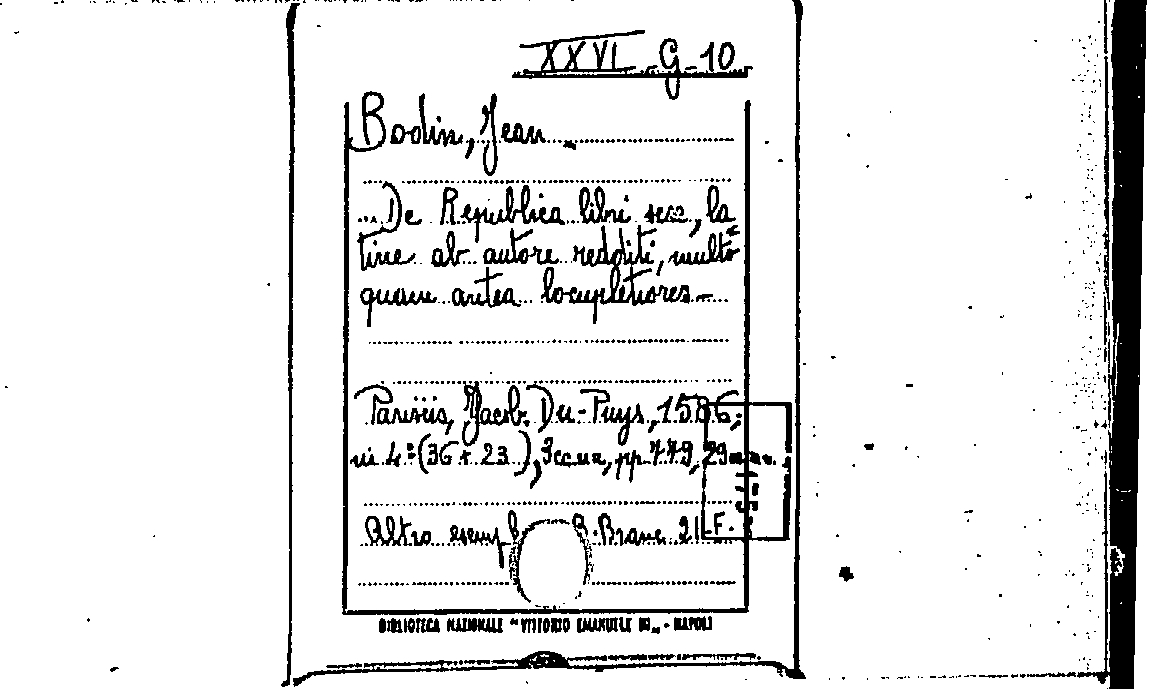 XXVI G 10
Bodin, Jean
...De Republica libri sex, la
tine ab autore redditi, multo
quam antea locupletiores.
Parisiis, Jacob. Du-Puys, 1586,
in 4.° (36 + 23), pp. 779,
Altro esempl B. Branc. 21 F.
BIBLIOTECA NAZIONALE "VITTORIO EMANUELE III" - NAPOLI